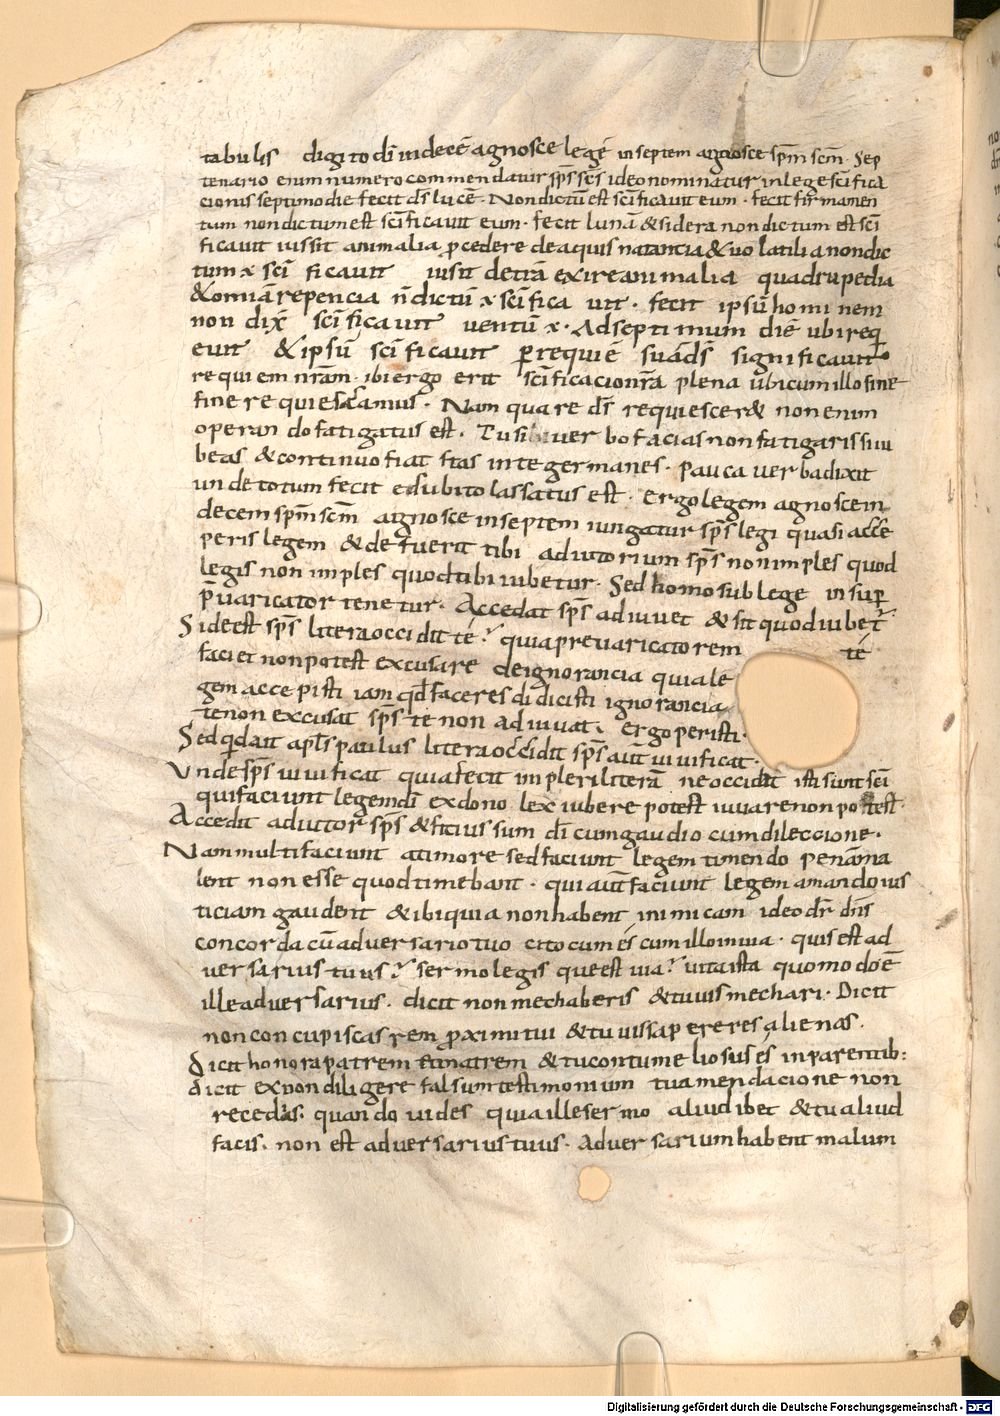 tabulis digito dī indecē agnosce legē in septem agnosce spm̄ scm̄. Sep
tenario enim numero commendatur sps̄ scs̄ ideo nominatur in lege scīfica
cionis septimo die fecit ds̄ lucē. Non dictū est scīficavit eum. fecit firmamen
tum non dictum est scīficavit eum. fecit lunā & sidera non dictum est scī
ficavit iussit animalia ꝓcedere de aquis natancia & volatilia non dic
tum ÷ scī ficavit iusit de trā exire animalia quadrupedia
& omīa repencia n̄ dictū ÷ scīfica vit. fecit ipsū hominem
non dix̄ scīficavit ventū ÷. Ad septimum diē ubi req
evit & ipsū scīficavit ꝑ requiē suā ds̄ significavit
requiem nr̄am. ibi ergo erit scīficacio nr̄a plena ubi cum illo sine
fine requiescamus. Nam quare ds̄ requiescer& non enim
operando fatigatus est. Tu si verbo facias non fatigaris si iu
beas & continuo fiat stas integer manes. pauca verba dixit
unde totum fecit & subito lassatus est. Ergo legem agnosce in
decem spm̄ scm̄ agnosce in septem iungatur sps̄ legi quasi acce
peris legem & defuerit tibi adiutorium sps̄ non imples quod
legis non imples quod tibi iubetur. Sed homo sub lege insuꝑ
p̄varicator tenetur. Accedat sps̄ adiuvet & fit quod iubet̄
Si deest sps̄ litera occidit te. quia prevaricatorem te
faciet non potest excusare de ignorancia quia le
gem accepisti iam qd̄ faceres didicisti ignorancia
te non excusat sps̄ te non adiuvat. Ergo peristi.
Sed qd̄ ait apls̄ paulus litera occidit sps̄ aut̄ vivificat.
Unde sps̄ vivificat quia fecit impleri literā ne occidat isti sunt scī
qui faciunt legem dī ex dono lex iubere potest iuvare non potest.
Accedit adiutor sps̄ & fit iussum dī cum gaudio cum dileccione.
Nam multi faciunt a timore sed faciunt legem timendo penā ma
lent non esse quod timebant. qui aut̄ faciunt legem amando ius
ticiam gaudent & ibi quia non habent inimicam ideo dr̄ dn̄s
concorda cū adversario tuo cito cum es cum illo in via. quis est ad
versarius tuus. sermo legis que est via. vita ista quomodo ē
ille adversarius. dicit non mechaberis & tu vis mechari. Dicit
non concupiscas rem ꝓximi tui & tu vis sapere res alienas.
dicit honora patrem & matrem & tu contumeliosus es in parentib:
dicit & non diligere falsum testimonium tu a mendacione non
recedas. quando vides quia ille sermo aliud ibet & tu aliud
facis. non est adversarius tuus. Adversarium habent malum
Digitalisierung gefördert durch die Deutsche Forschungsgemeinschaft - DFG